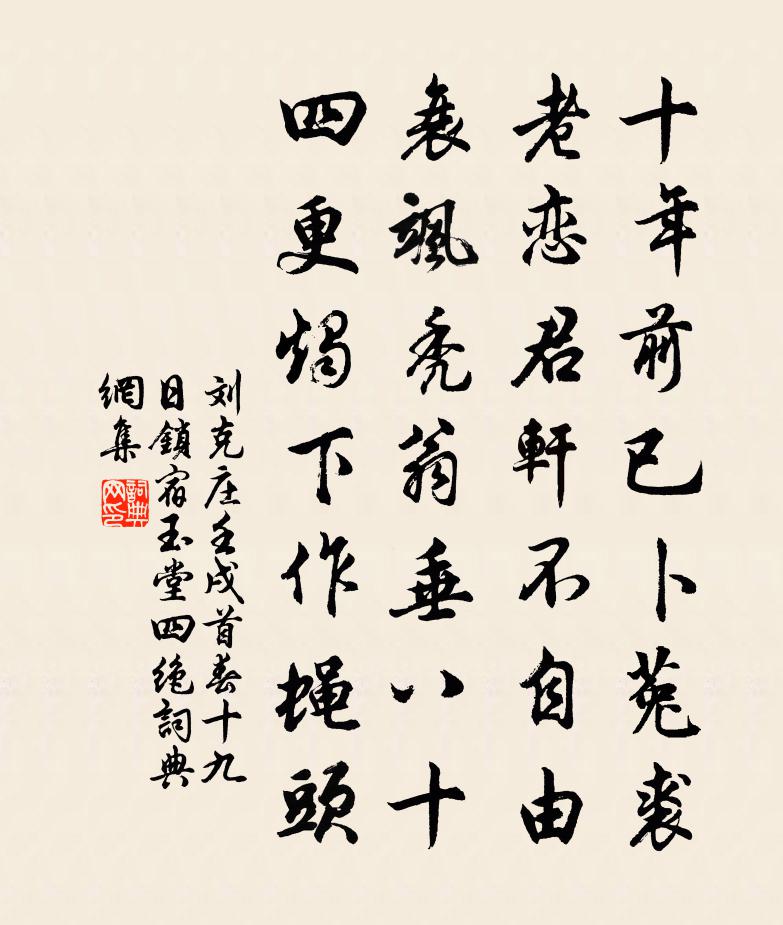 十年前已卜菟裘
老恋君軒不自由
衰颯秃翁垂八十
四更燭下作蝇頭
刘克庄壬戌首春十九
日鎖宿玉堂四绝詞典
網集
詞典
网印